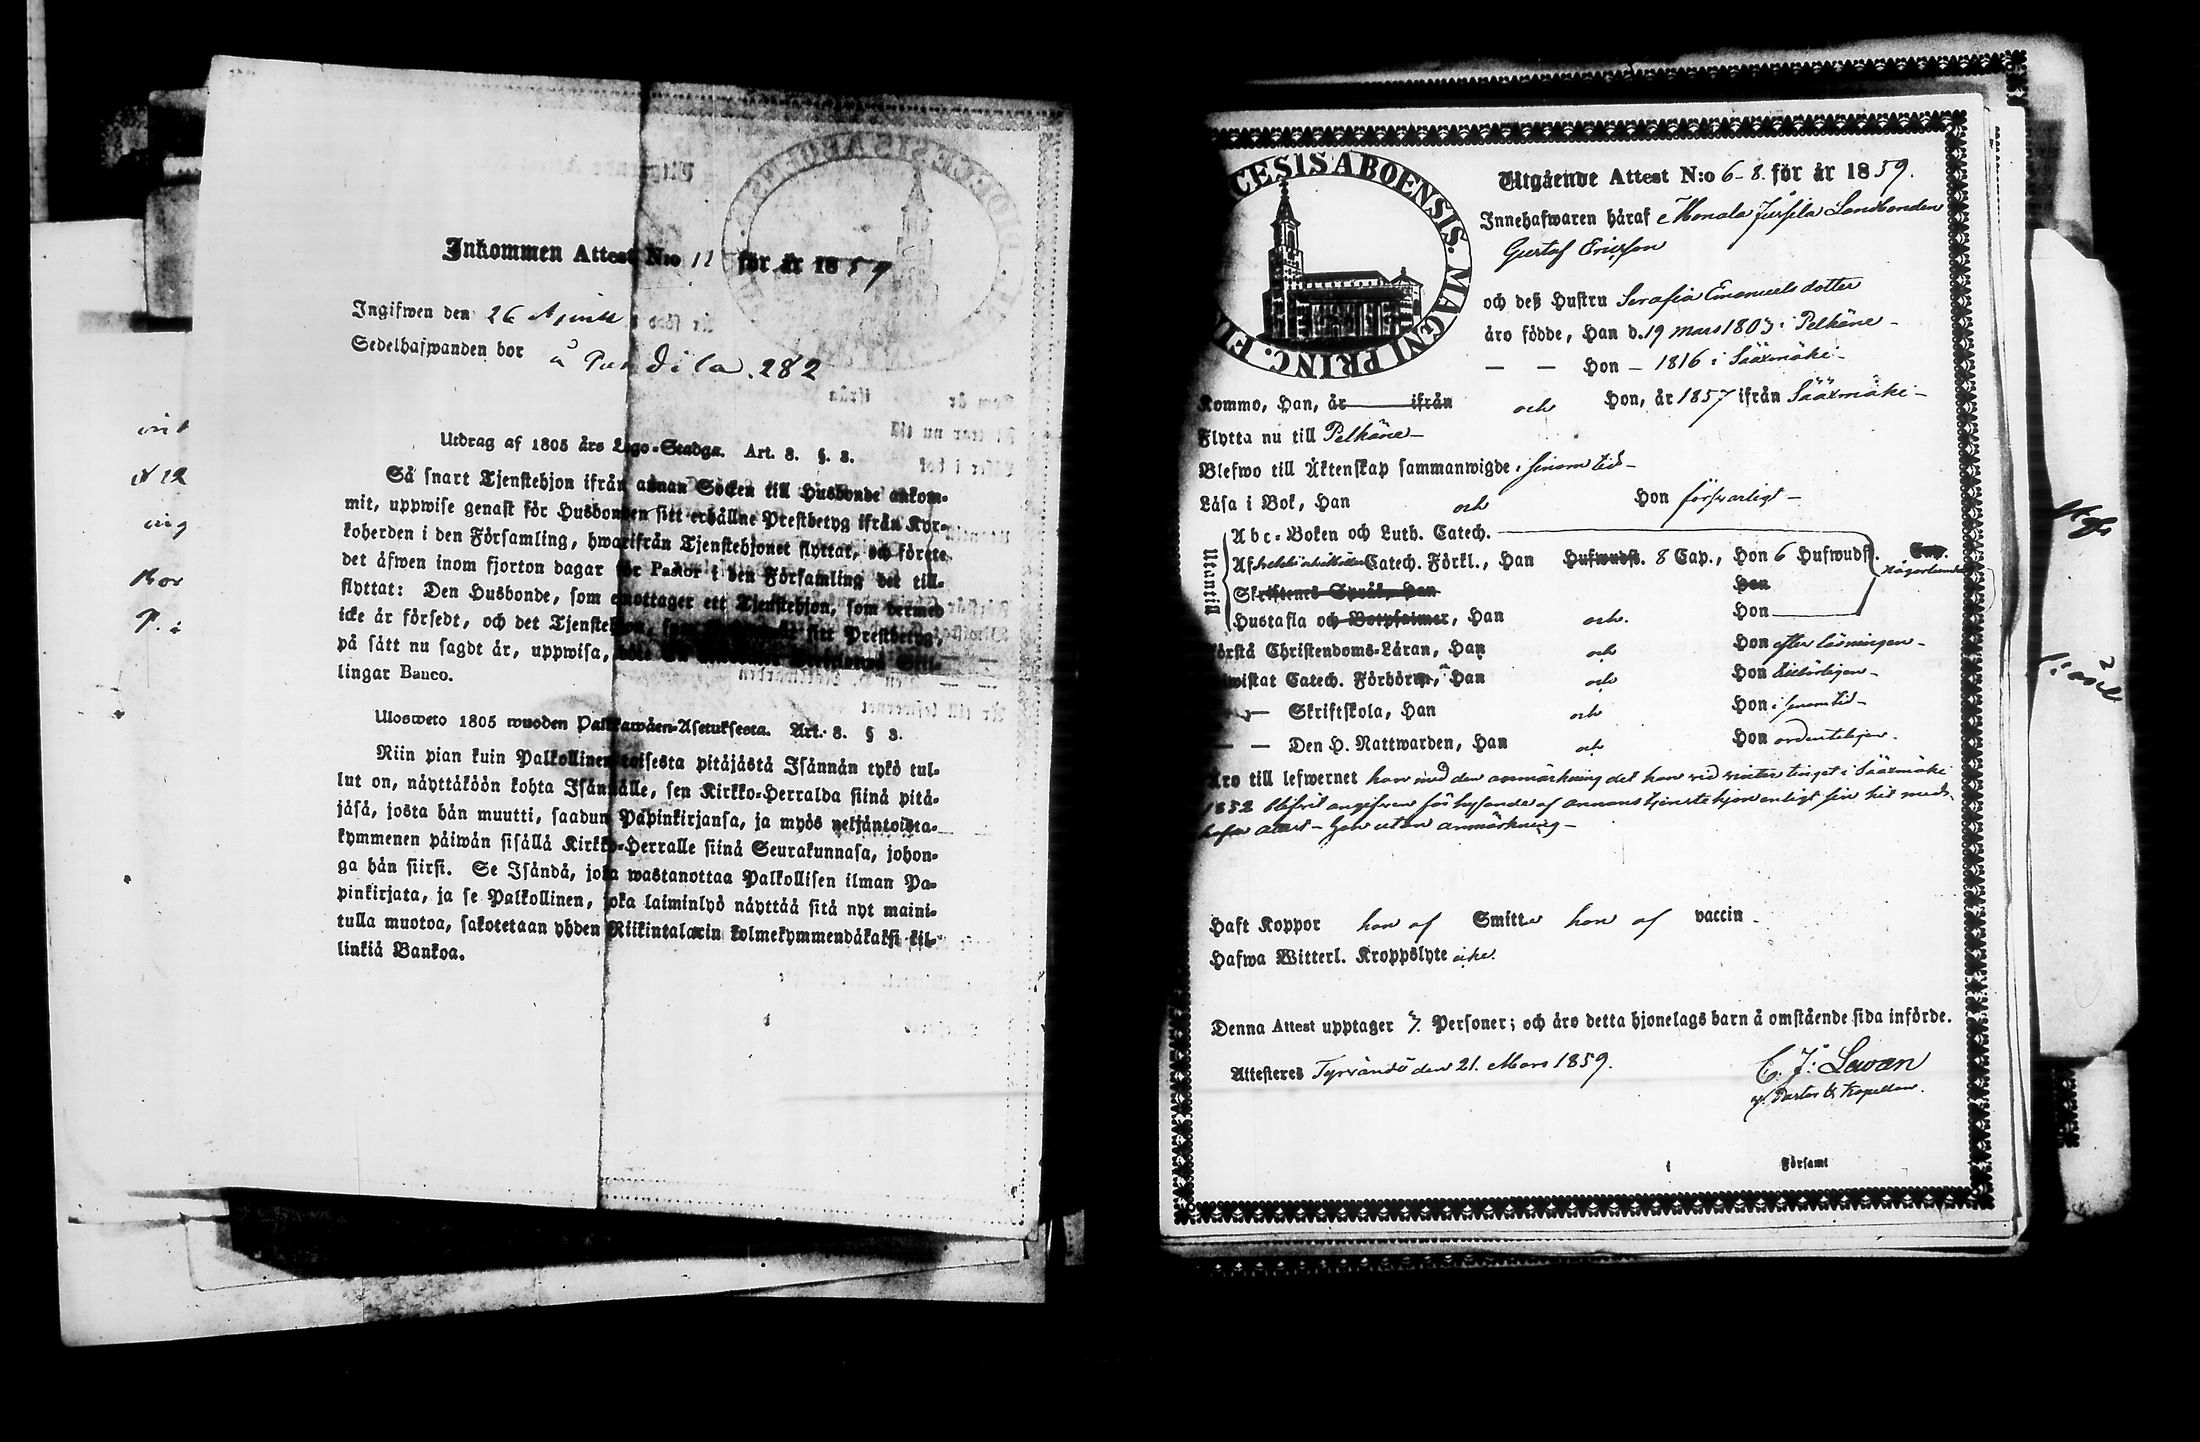 Inkommen Attest N:o 11 för år 1859
Ingifwen den 26 April
Sedelhafwanden bor å Pundila. 282
Utdrag af 1805 års Lego-Stadga. Art. 8. §. 8.
Så snart Tjenstehjon ifrån annan Socken till Husbonde ankom-
mit, uppwise genast för Husbonden sitt erhållne Prestbetyg ifrån Kyr-
koherden i den Församling, hwarifrån Tjenstehjonet flyttat, och förete
det äfwen inom fjorton dagar för Pastor i den Församling det till-
flyttat: Den Husbonde, som emottager ett Tjenstehjon, som dermed
icke är försedt, och det Tjenstehjon, sitt Prestbetyg,
på sätt nu sagdt är, uppwisa,
lingar Banco.
Ulosweto 1805 wuoden Palkkawäen-Asetuksesta. Art. 8. § 8.
Niin pian kuin Palkollinen toisesta pitäjästä Isännän tykö tul-
lut on, näyttäköön kohta Isännälle, sen Kirkko-Herralda siinä pitä-
jäsä, josta hän muutti, saadun Papinkirjansa, ja myös neljäntoista-
kymmenen päiwän sisällä Kirkko-Herralle siinä Seurakunnasa, johon-
ga hän siirsi. Se Isändä, joka wastanottaa Palkollisen ilman Pa-
pinkirjata, ja se Palkollinen, joka laiminlyö näyttää sitä nyt maini-
tulla muotoa, sakotetaan yhden Riikintalarin kolmekymmendäkaksi kil-
linkiä Bankoa.
CESIS ABOENSIS. MAGNI PRINC. FI
Utgående Attest N:o 6-8. för år 1859.
Innehafwaren häraf Monala Jussila Landbonden
Gustaf Ericsson
och deß Hustru Serafia Emanuelsdotter
äro födde, Han d. 19 Mars 1803 i Pelkäne –
— — Hon – 1816 i Sääxmäki –
Kommo, Han, år ifrån och Hon, år 1857 ifrån Sääxmäki –
Flytta nu till Pelkäne –
Blefwo till Äktenskap sammanwigde i sinom tid –
Läsa i Bok, Han och Hon försvarligt –
Utantill
Abc-Boken och Luth. Catech.
Af Catech. Förkl., Han Hufwudst. 8 Cap., Hon 6 Hufwudst. Cap.
Skriftenes Språk, Han Hon
Hustafla och Botpsalmer, Han och. Hon
Förstå Christendoms-Läran, Han och Hon efter läsningen –
Bewistat Catech. Förhören, Han och Hon tillbörligen –
— Skriftskola, Han och Hon i sinom tid –
— — Den H. Nattwarden, Han och Hon ordentligen.
Äro till lefwernet han med den anmärkning det han vid vinter tinget i Sääxmäki
1852 blifvit angifven för hysande af annans tjenstehjon enligt sin hit med-
hafda attest – hon utan anmärkning –
Haft Koppor han af Smitta hon af vaccin.
Hafwa Witterl. Kroppslyte icke.
Denna Attest upptager 7. Personer; och äro detta hjonelags barn å omstående sida införde.
Attesteres Tyrväntö den 21. Mars 1859.
C. J. Lewan
v. Pastor & Kapellan.
Församl